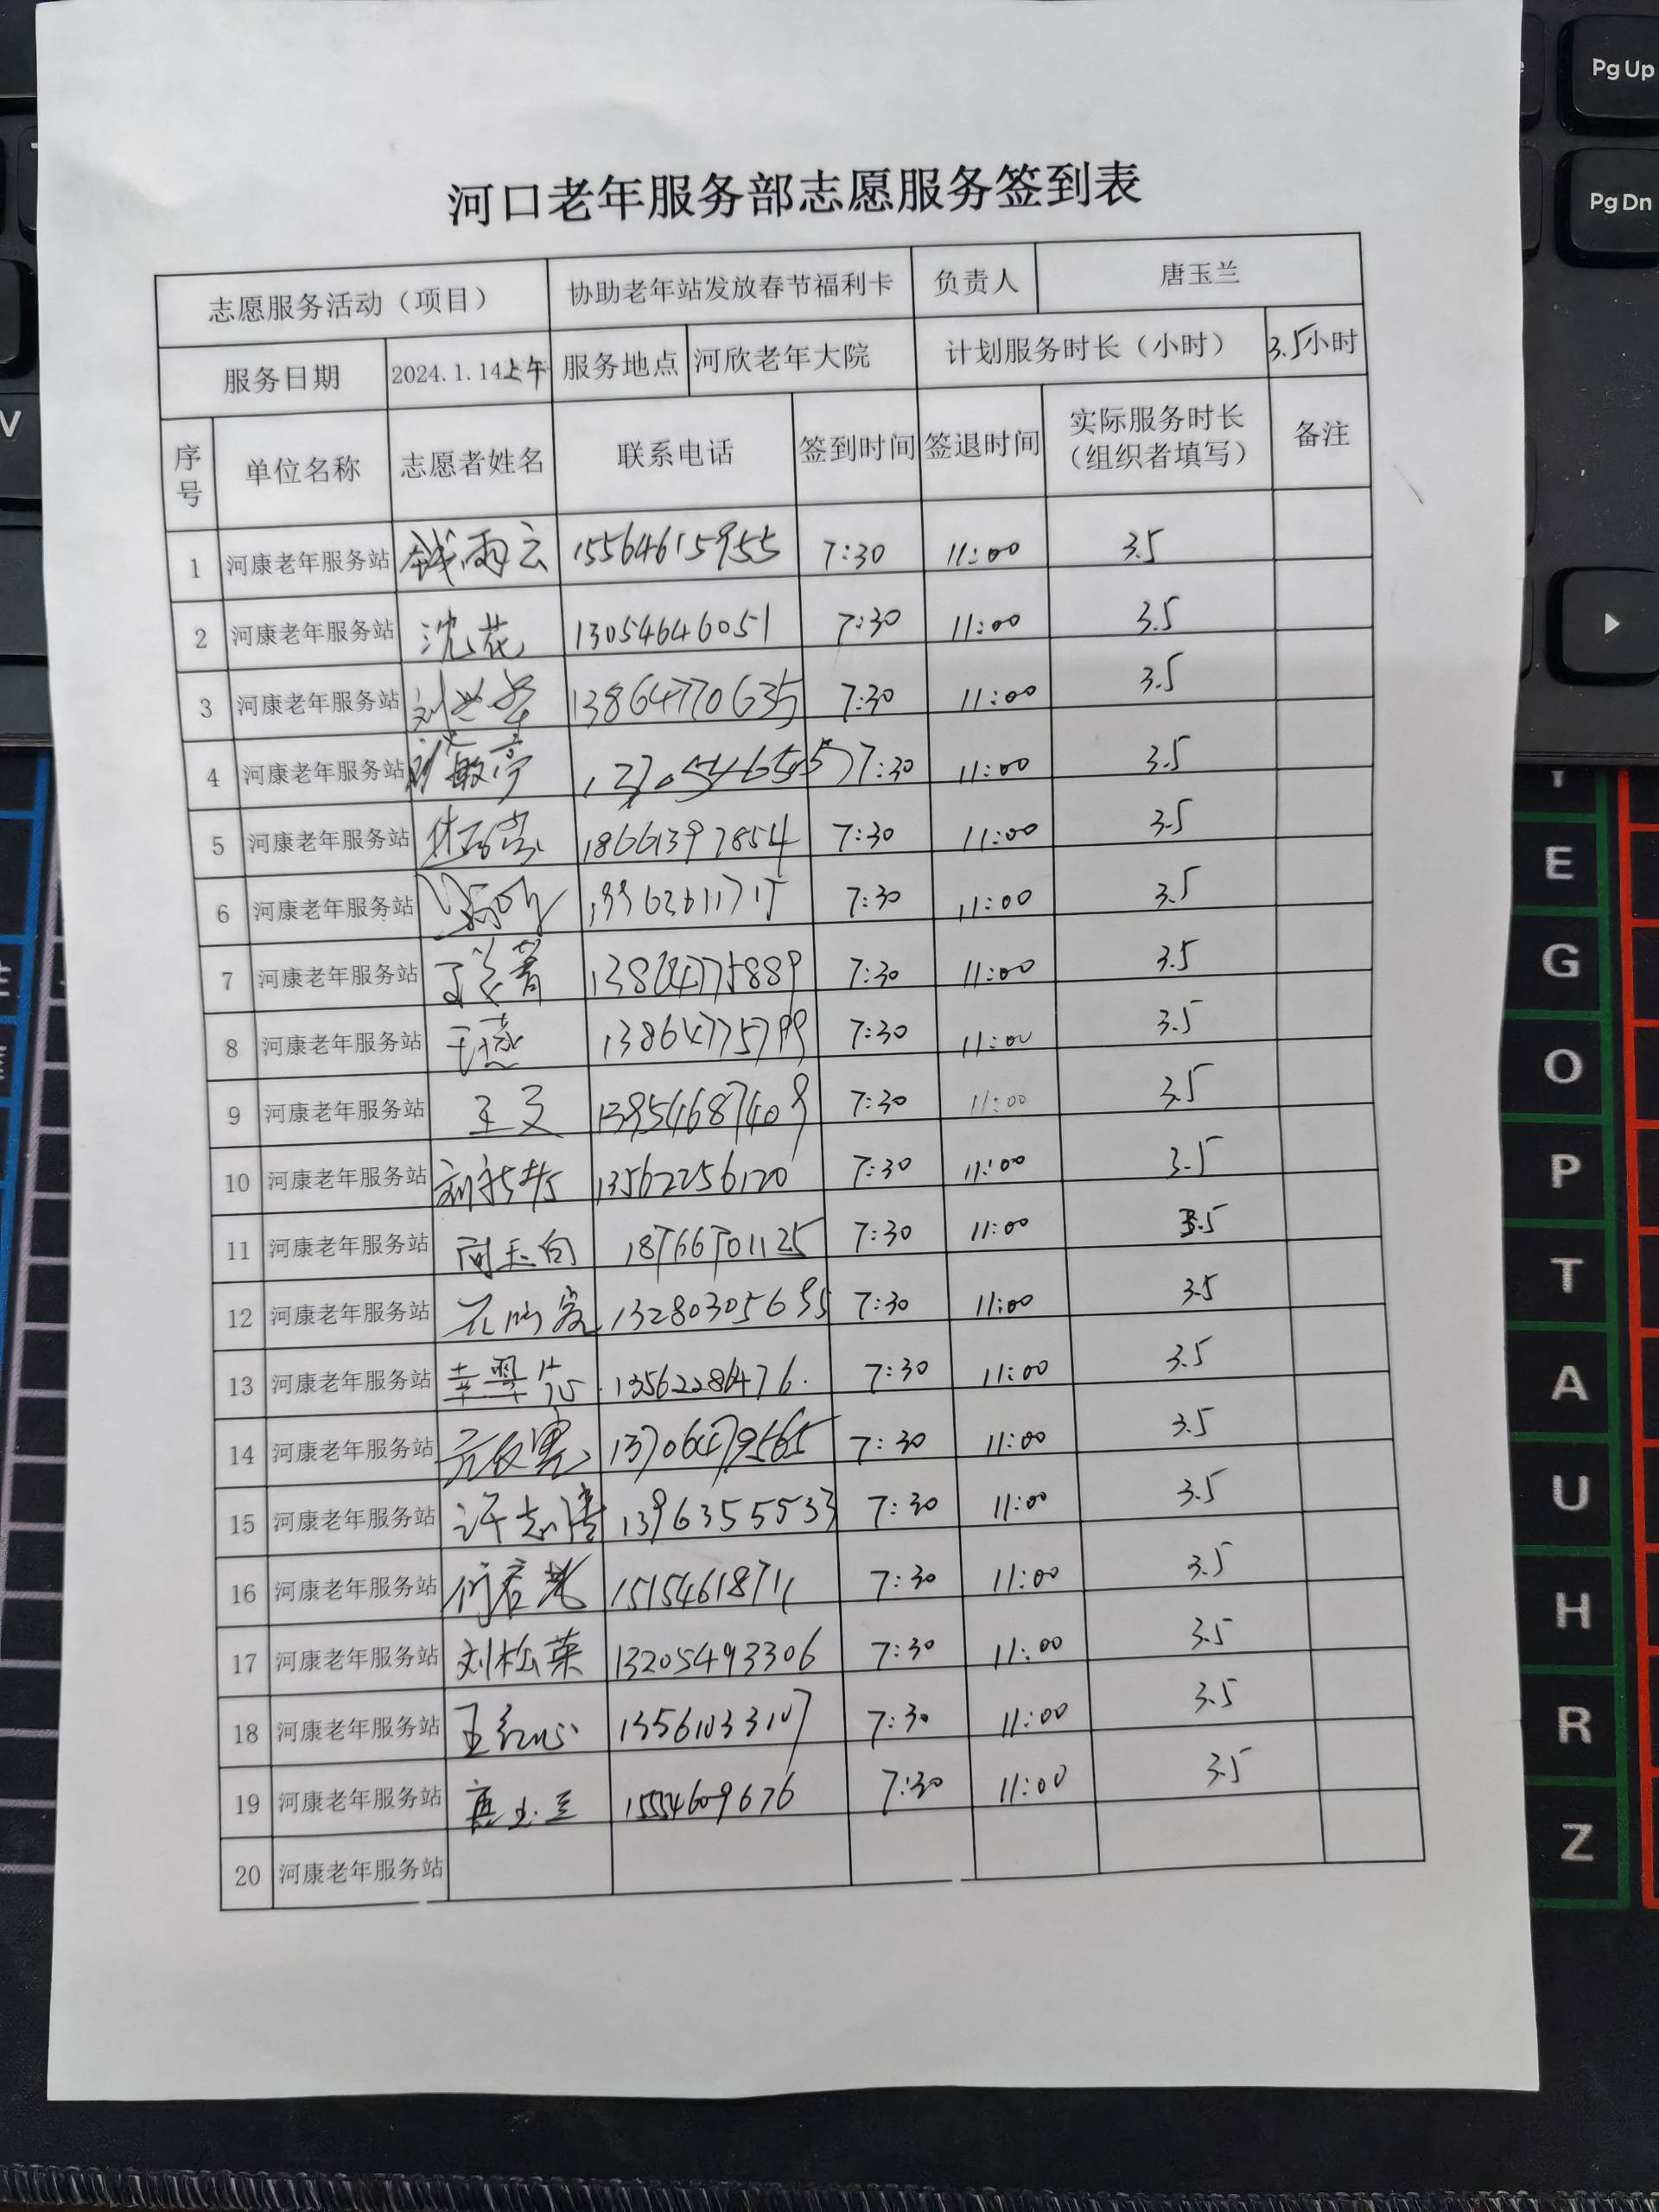 河口老年服务部志愿服务签到表
志愿服务活动（项目） 协助老年站发放春节福利卡 负责人 唐玉兰
服务日期 2024.1.14上午 服务地点 河欣老年大院 计划服务时长（小时） 3.5小时
序号 单位名称 志愿者姓名 联系电话 签到时间 签退时间 实际服务时长（组织者填写） 备注
1 河康老年服务站 钱雨云 15564615955 7:30 11:00 3.5
2 河康老年服务站 沈花 13054646051 7:30 11:00 3.5
3 河康老年服务站 13864770635 7:30 11:00 3.5
4 河康老年服务站 7:30 11:00 3.5
5 河康老年服务站 18661397854 7:30 11:00 3.5
6 河康老年服务站 7:30 11:00 3.5
7 河康老年服务站 13864775889 7:30 11:00 3.5
8 河康老年服务站 13864775799 7:30 11:00 3.5
9 河康老年服务站 13954687409 7:30 11:00 3.5
10 河康老年服务站 13562256120 7:30 11:00 3.5
11 河康老年服务站 18766701125 7:30 11:00 3.5
12 河康老年服务站 7:30 11:00 3.5
13 河康老年服务站 13562286476 7:30 11:00 3.5
14 河康老年服务站 13706479565 7:30 11:00 3.5
15 河康老年服务站 许志涛 13963555533 7:30 11:00 3.5
16 河康老年服务站 15154618711 7:30 11:00 3.5
17 河康老年服务站 刘松荣 13205493306 7:30 11:00 3.5
18 河康老年服务站 13561033107 7:30 11:00 3.5
19 河康老年服务站 唐玉兰 15554609676 7:30 11:00 3.5
20 河康老年服务站
Pg Up
Pg Dn
V
E
G
O
P
T
A
U
H
R
Z